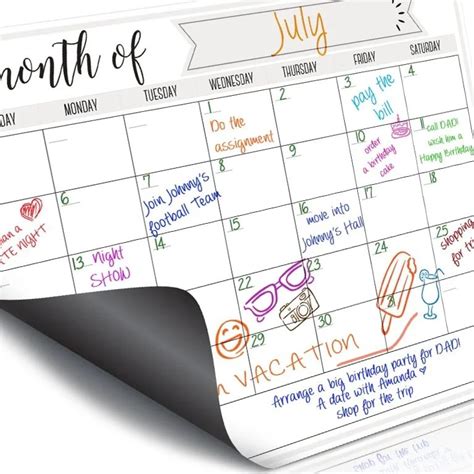 month of
July
DAY MONDAY TUESDAY WEDNESDAY THURSDAY FRIDAY SATURDAY
1
Do the
assignment
2
3
pay the
bill
4
6
7
Join Johnny's
football Team
8
9
10
order
a birthday
cake
11
call DAD!
wish him a
Happy Birthday
NIGHT
13
night
SHOW
14
15
16
move into
Johnny's Hall
17
18
shopping
for the
trip
22
23
24
25
29
30
31
VACATION
Arrange a big birthday party for DAD!
A date with Amanda
shop for the trip